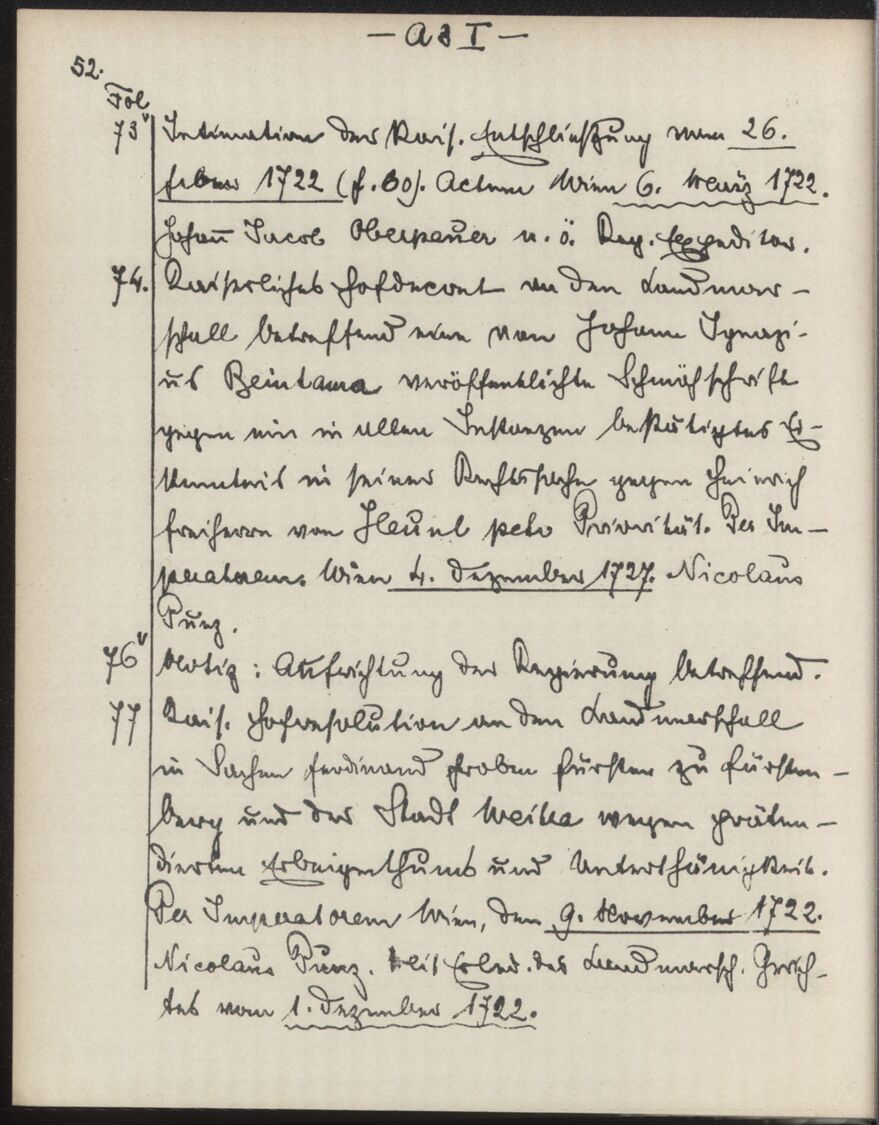 — A 3 I —
52.
Fol
73v Intimation der Kais. Entschließung vom 26.
feber 1722 (f. 60). Actum Wien 6. März 1722.
Johan̄ Jacob Oberpauer n. ö. Reg. Expeditor.
74. Kaiserliches Hofdecret an den Landmar-
schall betreffend eine von Johann Ignazi-
us Beintama veröffentlichte Schmähschrift
gegen ein in allen Instanzen bestätigtes Er-
kenntnis in seiner Rechtssache gegen Heinrich
freiherrn von pcto Priorität. Per Im-
peratorem. Wien 4. Dezember 1727. Nicolaus
Punz.
76v Notiz: Aufrichtung der Regierung betreffend.
77 Kais. Hofresolution an den Landmarschall
in Sachen ferdinand froben fürsten zu fürsten-
berg und der Stadt Weitra wegen präten-
dierten Erbeigenthums und Unterthänigkeit.
Per Imperatorem Wien, den 9. November 1722.
Nicolaus Punz. Mit Erled. des Landmarsch. Gerich-
tes vom 1. Dezember 1722.